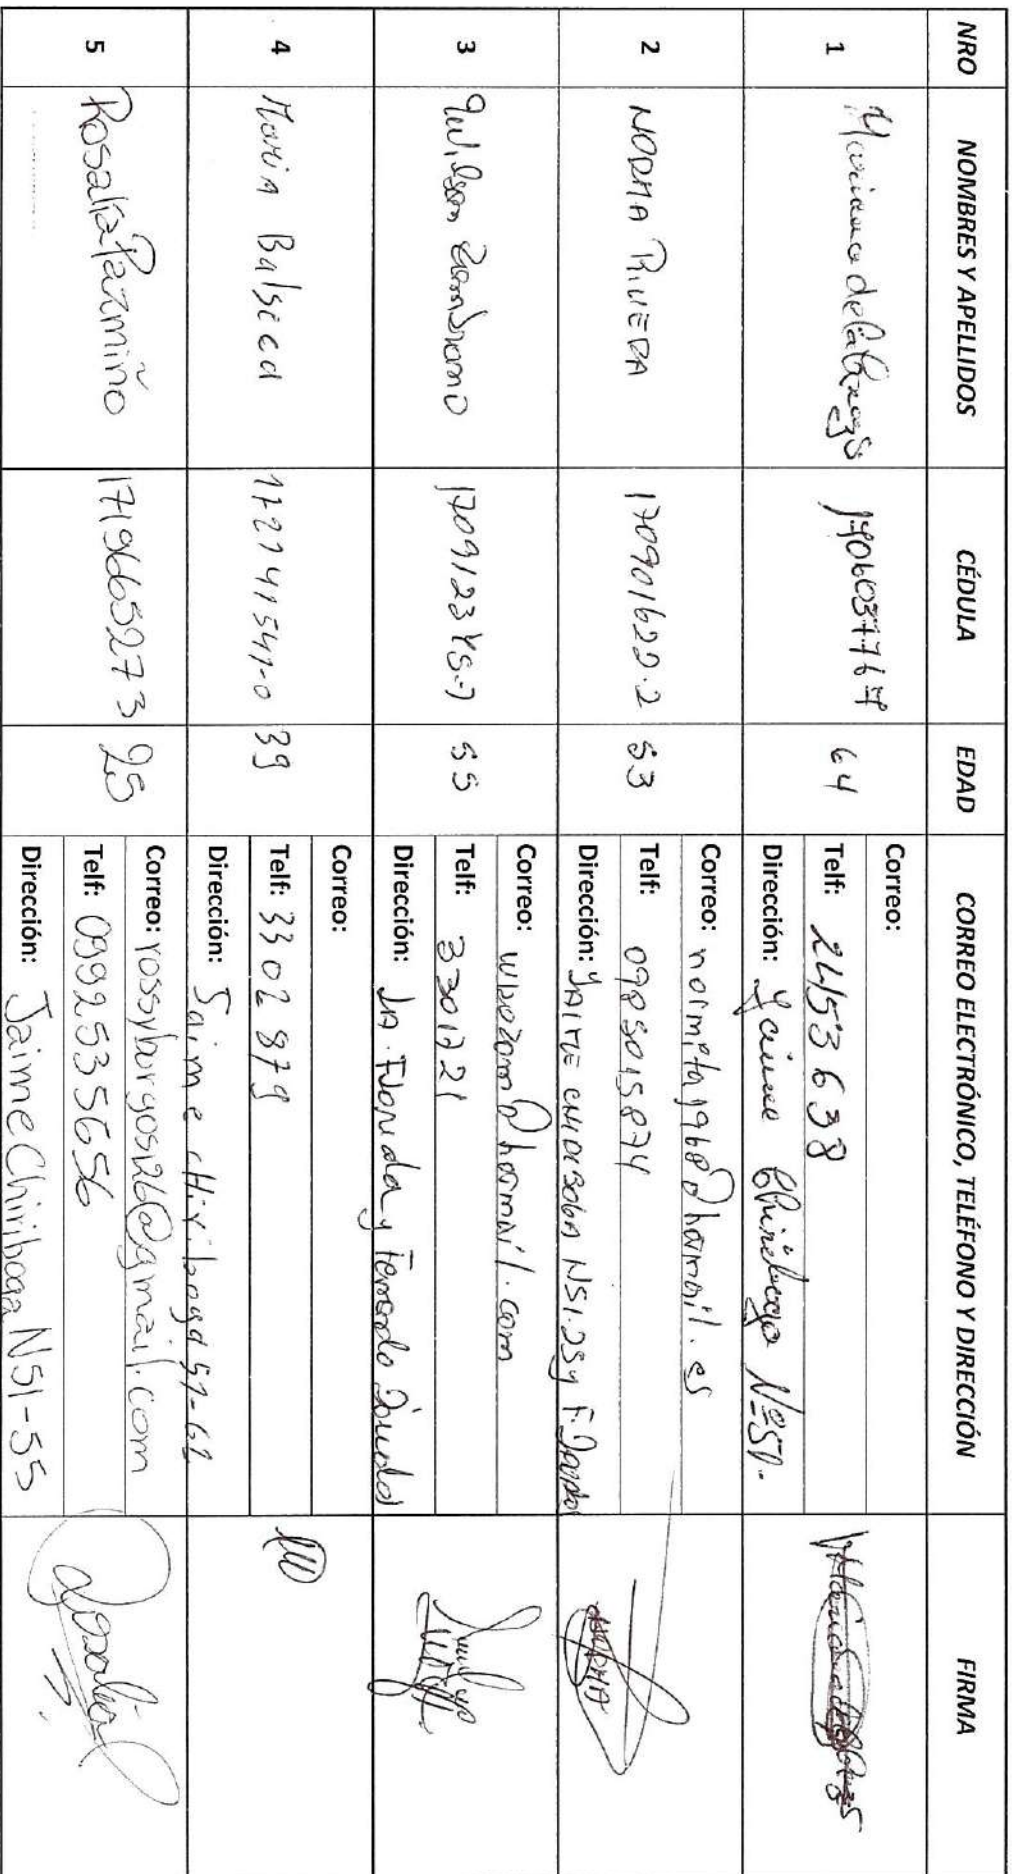 NRO NOMBRES Y APELLIDOS CÉDULA EDAD CORREO ELECTRÓNICO, TELÉFONO Y DIRECCIÓN FIRMA
1 Mariana de la 1706037767 64
Correo:
Telf: 2453638
Dirección: Jaime Chiriboga Nº51-
2 NORMA RIVERA 170901622-2 53
Correo: normita1968@hotmail.es
Telf: 0985015874
Dirección: JAIME CHIRIBOGA N51-25 y F.
NORMA
3 Wilson Zambrano 55
Correo:
Telf: 3301721
Dirección: LA Florida y Fernando
4 Maria Balseca 39
Correo:
Telf: 3302879
Dirección: Jaime chiriboga 51-61
5 Rosalia Pazmiño 1719665273 25
Correo: rossyburgos126@gmail.com
Telf: 0992535656
Dirección: Jaime Chiriboga N51-55
Rosalia